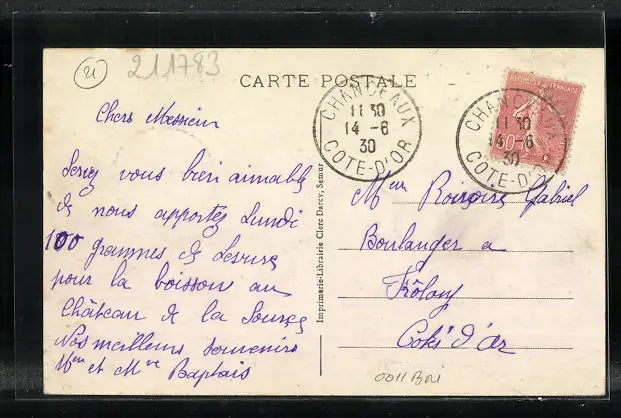 21
211783
CARTE POSTALE
RÉPUBLIQUE FRANÇAISE
50
CHANCEAUX
11 30
14 -6
30
COTE-D'OR
CHANCEAUX
11 30
14 -6
30
COTE-D'OR
Chers Messieur
Serez vous bien aimable
de nous apportez Lundi
100 grammes de Levure
pour la boisson au
Château de la Source
Nos meilleurs souvenirs
Mr et Mme Baptais
Imprimerie-Librairie Clerc Darcy, Semur
Mr Gabriel
Boulanger a
Frôlois
Coté d'or
0011 Boi